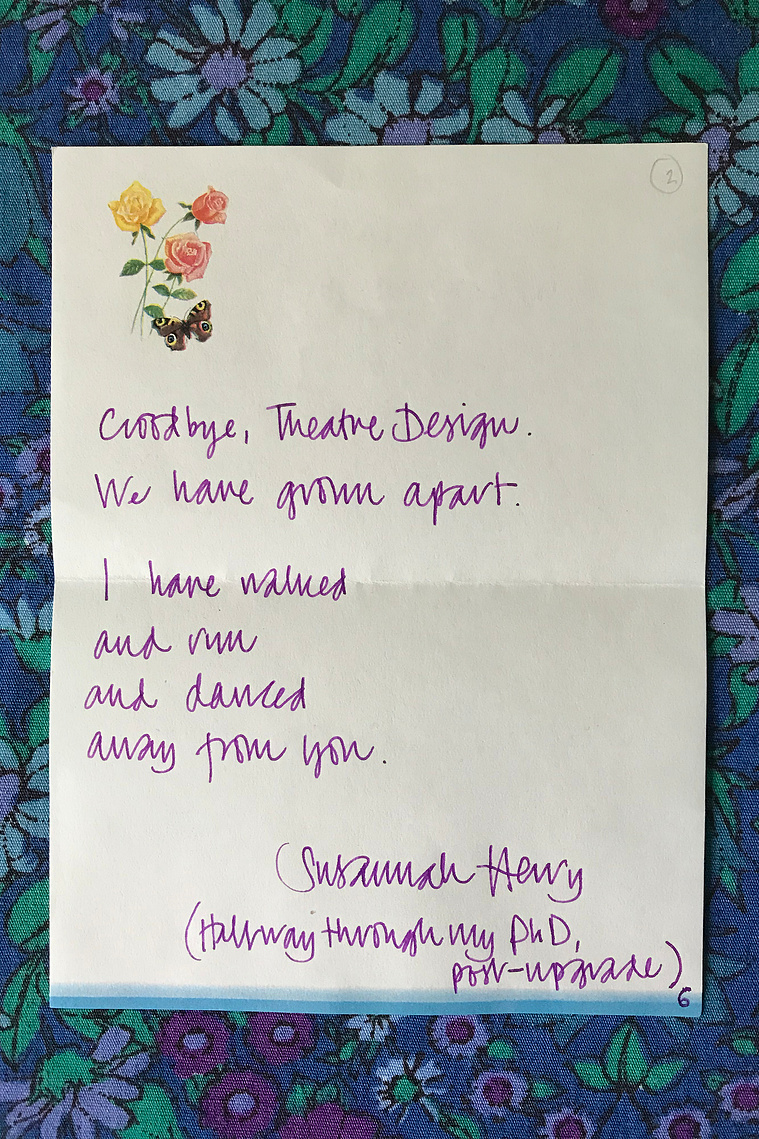 2
Goodbye, Theatre Design.
We have grown apart.
I have walked
and run
and danced
away from you.
Susannah Henry
(Halfway through my PhD,
post-upgrade)
6